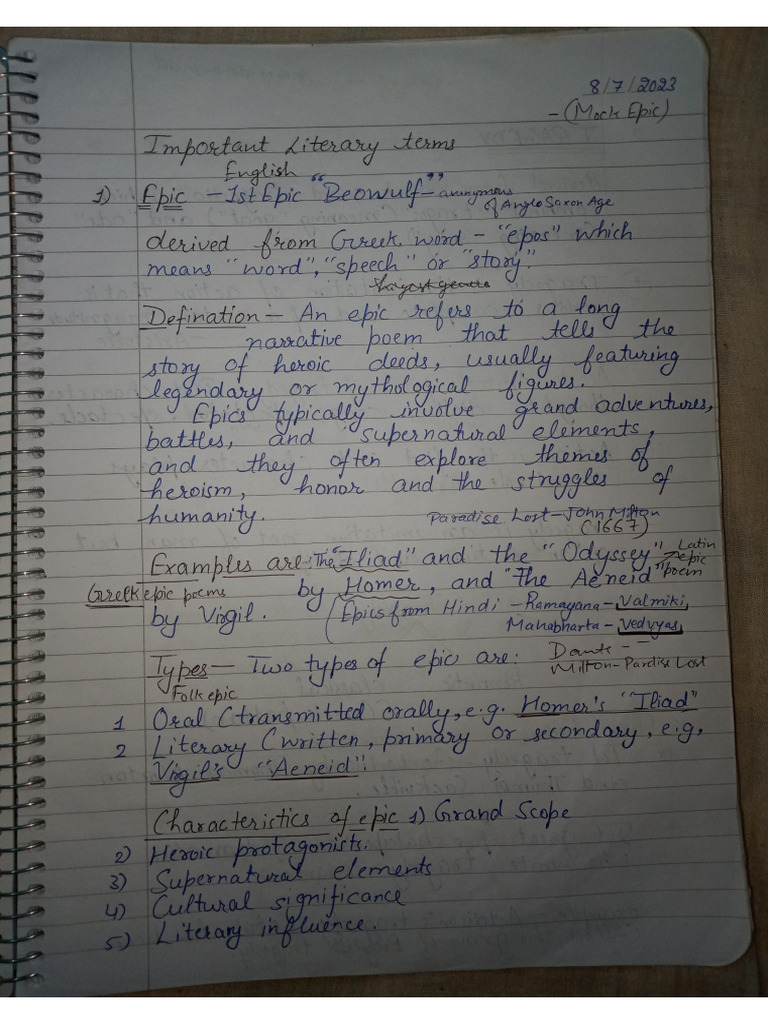 8/7/2023
-(Mock Epic)
Important Literary terms
English
1) Epic - 1st Epic "Beowulf" - anonymous
of Anglo Saxon Age
derived from Greek word - "epos" which
means "word", "speech" or "story".
Defination - An epic refers to a long
narrative poem that tells the
story of heroic deeds, usually featuring
legendary or mythological figures.
Epics typically involve grand adventures,
battles, and supernatural elements,
and they often explore themes of
heroism, honor and the struggles of
humanity. Paradise Lost - John Milton
(1667)
Examples are: The "Iliad" and the "Odyssey" Latin epic poem
Greek epic poems by Homer, and "The Aeneid"
by Virgil. (Epics from Hindi - Ramayana - Valmiki,
Mahabharta - Vedvyas
Types - Two types of epic are: Dante -
Folk epic Milton - Pardise Lost
1 Oral (transmitted orally, e.g. Homer's "Iliad"
2 Literary (written, primary or secondary, e.g,
Virgil's "Aeneid".
Characteristics of epic 1) Grand Scope
2) Heroic protagonists.
3) Supernatural elements
4) Cultural significance
5) Literary influence.